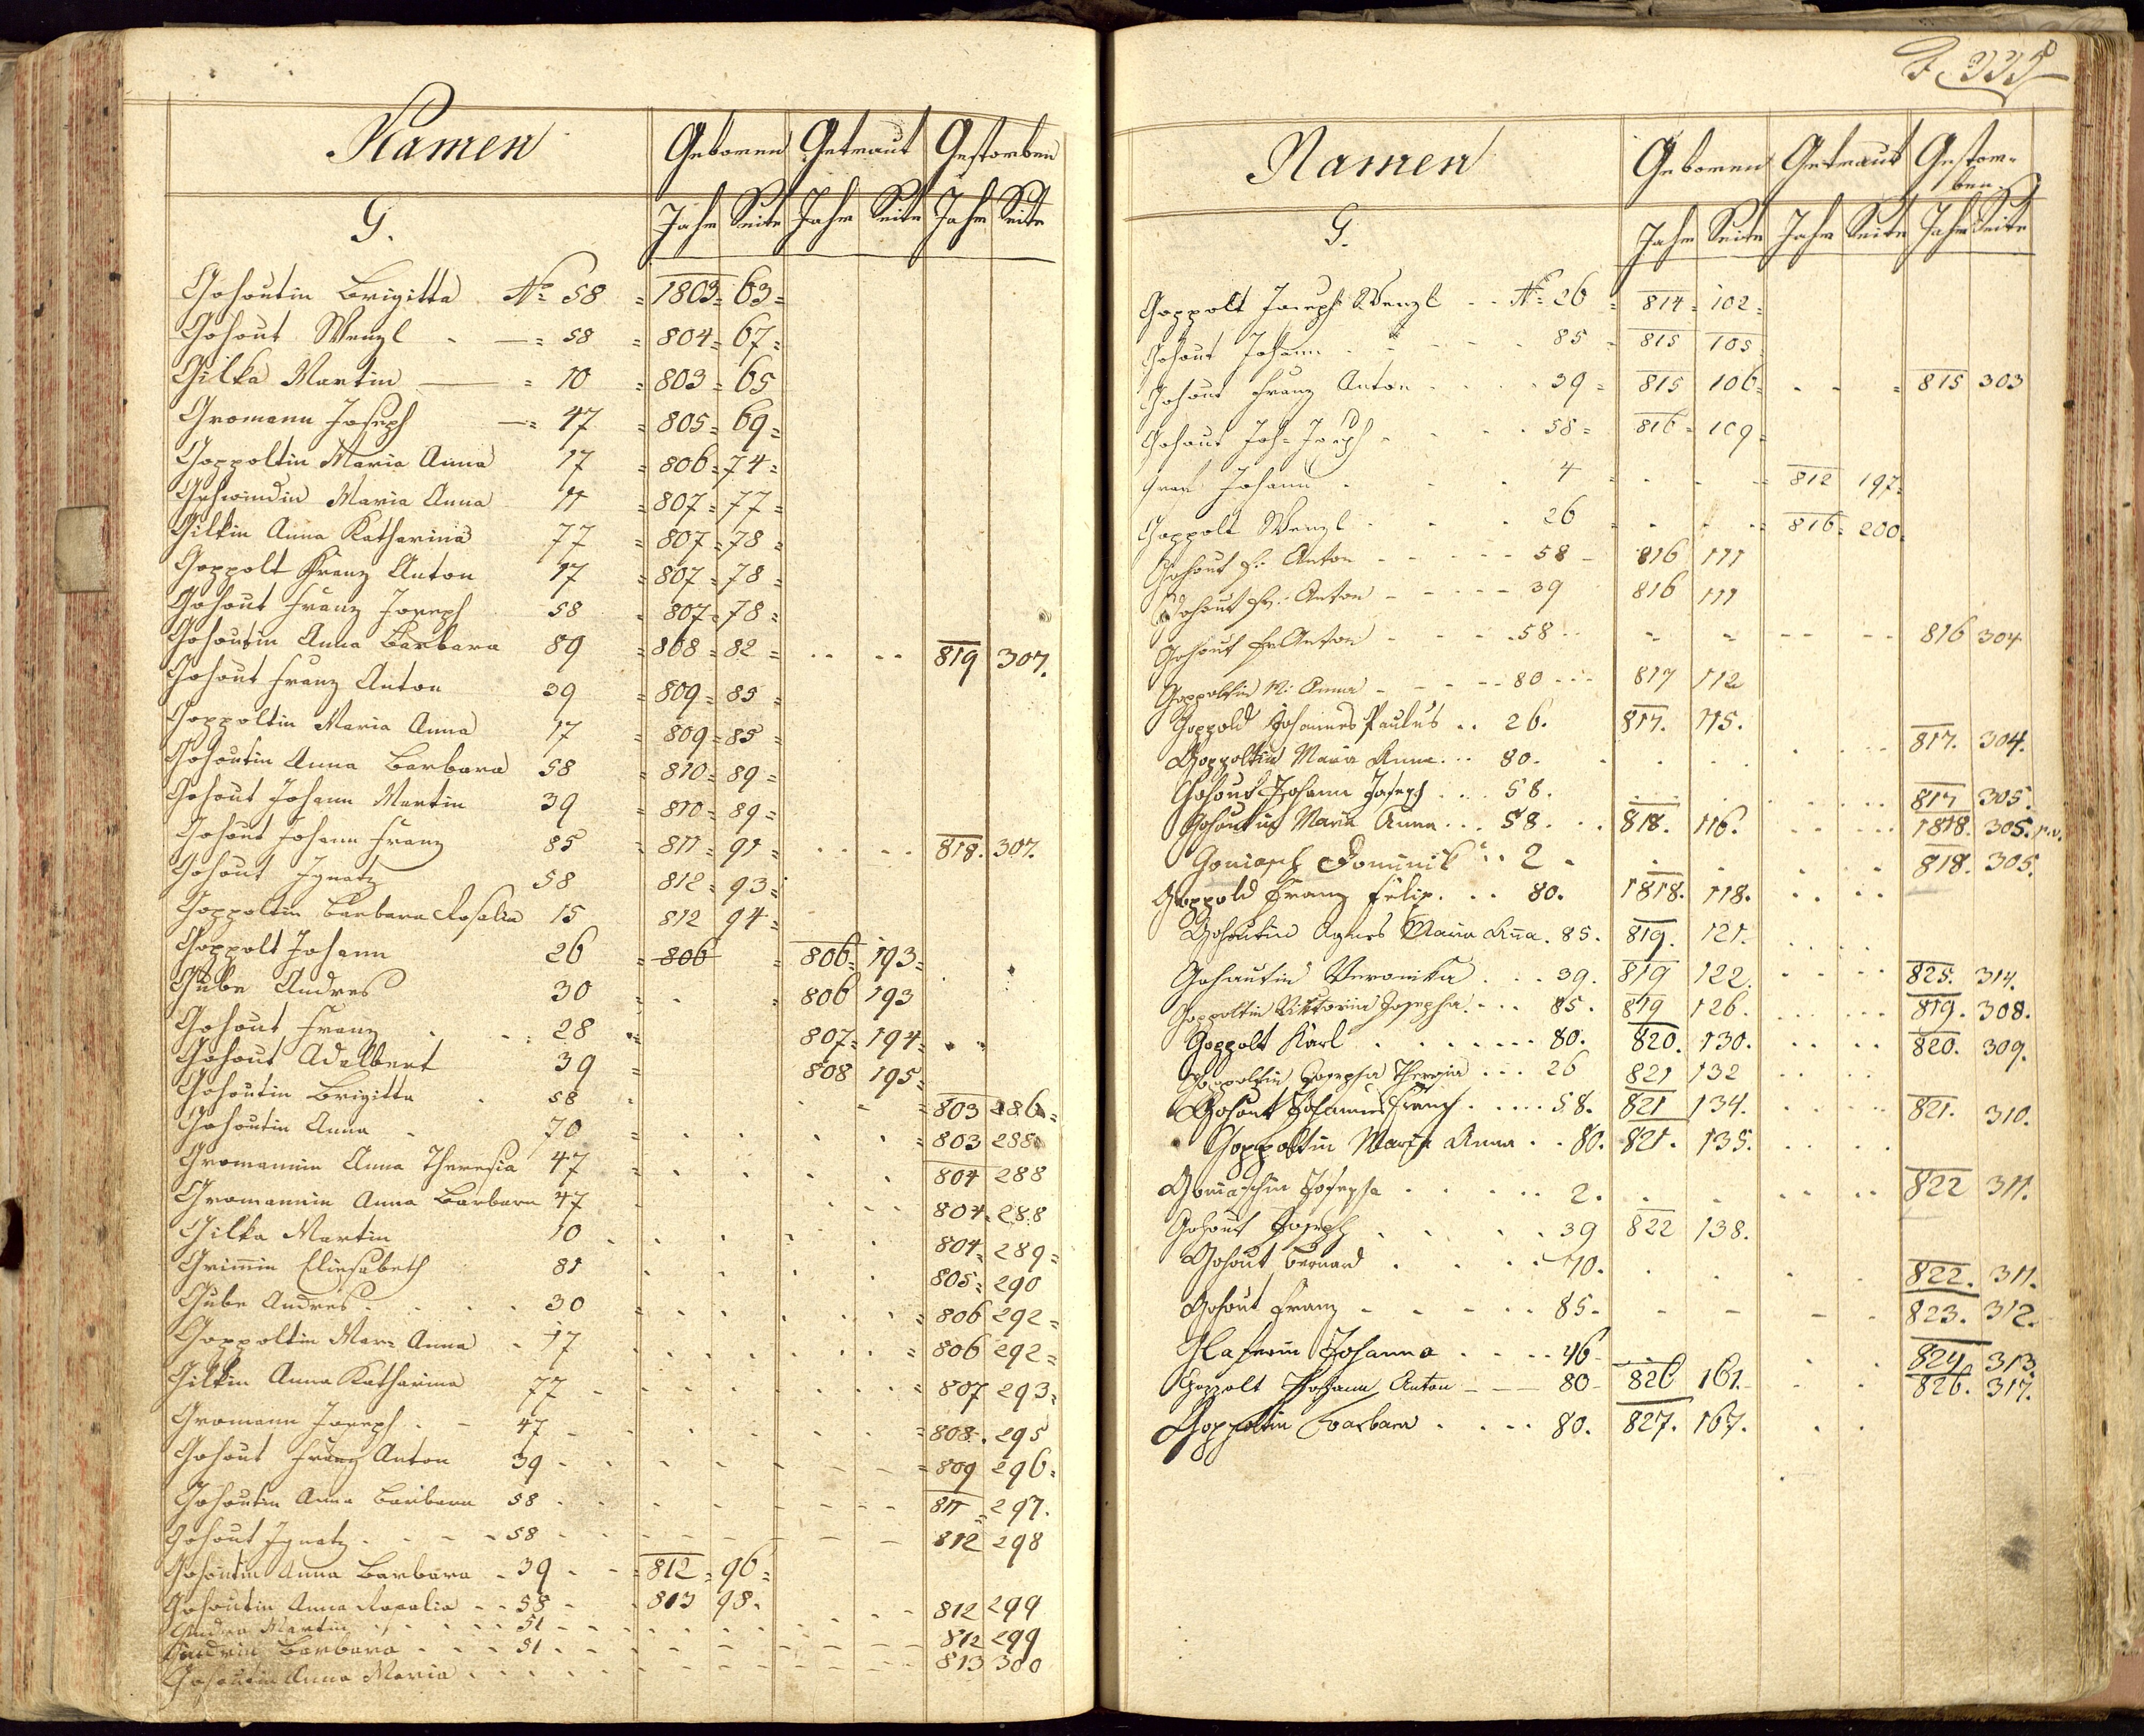 Namen Geboren Getraut Gestorben
G. Jahr Seite Jahr Seite Jahr Seite
Gohoutin Brigitta No 58 = 1803 = 63 =
Gohout Wenzl - — = 58 = 804 = 67 =
Gilka Martin — = 10 = 803 = 65
Gromann Joseph — = 47 = 805 = 69 =
Goppoltin Maria Anna 17 = 806 = 74 =
Gschwindin Maria Anna 11 = 807 = 77 =
Gilkin Anna Katharina 77 = 807 = 78 =
Goppolt Franz Anton 17 = 807 = 78 =
Gohout Franz Joseph 58 807 = 78 =
Gohoutin Anna Barbara 89 = 808 = 82 = .. .. 819 307.
Gohout Franz Anton 39 = 809 = 85 =
Goppoltin Maria Anna 17 = 809 = 85 =
Gohoutin Anna Barbara 58 = 810 = 89 =
Gohout Johann Martin 39 = 810 = 89 =
Gohout Johann Franz 85 = 811 = 91 = . . . . 818. 307.
Gohout Ignatz 58 812 = 93 =
Goppoltin Barbara Rosalia 15 812 94 =
Goppolt Johann 26 = 806 = 806 = 193 =
Gube Andres 30 = . = 806 193
Gohout Franz . . = 28 = 807 = 194 =
Gohout Adalbert 39 = 808 195 =
Gohoutin Brigitta . 58 - . - = 803 286 =
Gohoutin Anna . 70 = . . . . = 803 288
Gromannin Anna Theresia 47 = . . . . 804 288
Gromannin Anna Barbara 47 . . . . 804 = 288
Gilka Martin 10 . . . . . 804 = 289 =
Grimmin Eliesabeth 81 . . . . 805 = 290
Gube Andres . . . . 30 = . . . . . = 806 292 =
Goppoltin Mar= Anna . 17 . . . . . . = 806 292 =
Gilkin Anna Katharina 77 - - - - - - = 807 293 =
Gromann Joseph . - 47 - - - - . . = 808 . 295
Gohout Franz Anton 39 - - - - - - = 809 296 =
Gohoutin Anna Barbara 58 . - - - - - - 811 = 297.
Gohout Ignatz . - - - 58 - - - - - - 812 298
Gohoutin Anna Barbara . 39 . - = 812 = 96 =
Gohoutin Anna Rosalia . . 58 - . 813 98 . . . . 812 299
Martin . . . . 51 - - . . . . . 812 299
Barbara . . . 51 . - - - - - - 813 300
Gohoutin Anna Maria . . . . - - - - -
335
Namen Geboren Getraut Gestorben
G. Jahr Seite Jahr Seite Jahr Seite
Goppolt Joseph Wenzl . . No = 26 = 814 = 102 =
Gohout Johann . - - - . 85 - 815 105
Gohout Franz Anton . . . . 39 = 815 106 = . . = 815 303
Gohout Joh= Joseph - - . . 58 = 816 = 109 =
Johann . . 4 - . - - 812 197 =
Goppolt Wenzl . - . . 26 = . . . = 816 = 200 =
Gohout F: Anton - - - - - 58 - 816 111
Gohout Fr: Anton - - - - - 39 816 111
Gohout Fr Anton - - - - . 58 . . - - - - - - 816 304
Goppoltin M: Anna - - - - - 80 . . . 817 112
Goppold Johannes Paulus . . 26. 817. 115.
Goppoltin Maria Anna . . . 80. . . . . . . . . 817. 304.
Gohout Johann Joseph . . . 58. . . . . . . . . 817 305.
Gohoutin Maria Anna . . . 58. . . 818. 116. . . . . . 1818. 305.
Goniasch Dominik . . 2 - . . . . . 818. 305.
Goppold Franz Felix. . . 80. 1818. 118. . . . .
Gohoutin Agnes Maria Anna . 85. 819. 121. . . . .
Gohautin Veronika . . . 39. 819 122. . . . . 825. 314.
Goppoltin Viktoria Josepha . . . 85. 819 126. . . . . . . 819. 308.
Goppolt Karl . . . . . . . 80. 820. 130. . . . . 820. 309.
Goppoltin Josepha Theresia . . . 26 821 132 . . . .
Gohout Johannes Franz . . . . . 58. 821 134. . . . . 821. 310.
Goppoltin Maria Anna . . 80. 821. 135. . . . .
Goniaschin Josepha . . . . . 2. . . . . . . 822 311.
Gohout Joseph . . . . . 39 822 138.
Gohout Bernard . . . . 70. . . . . 822. 311.
Gohout Franz - - - - . . 85 - - - - - 823. 312.
Glaserin Johanna . . . . . 46 - . . . . 824 313
Goppolt Johann Anton - - — 80 - 826 161. . . 826. 317.
Goppoltin Barbara . . . . 80. 827. 167. . .